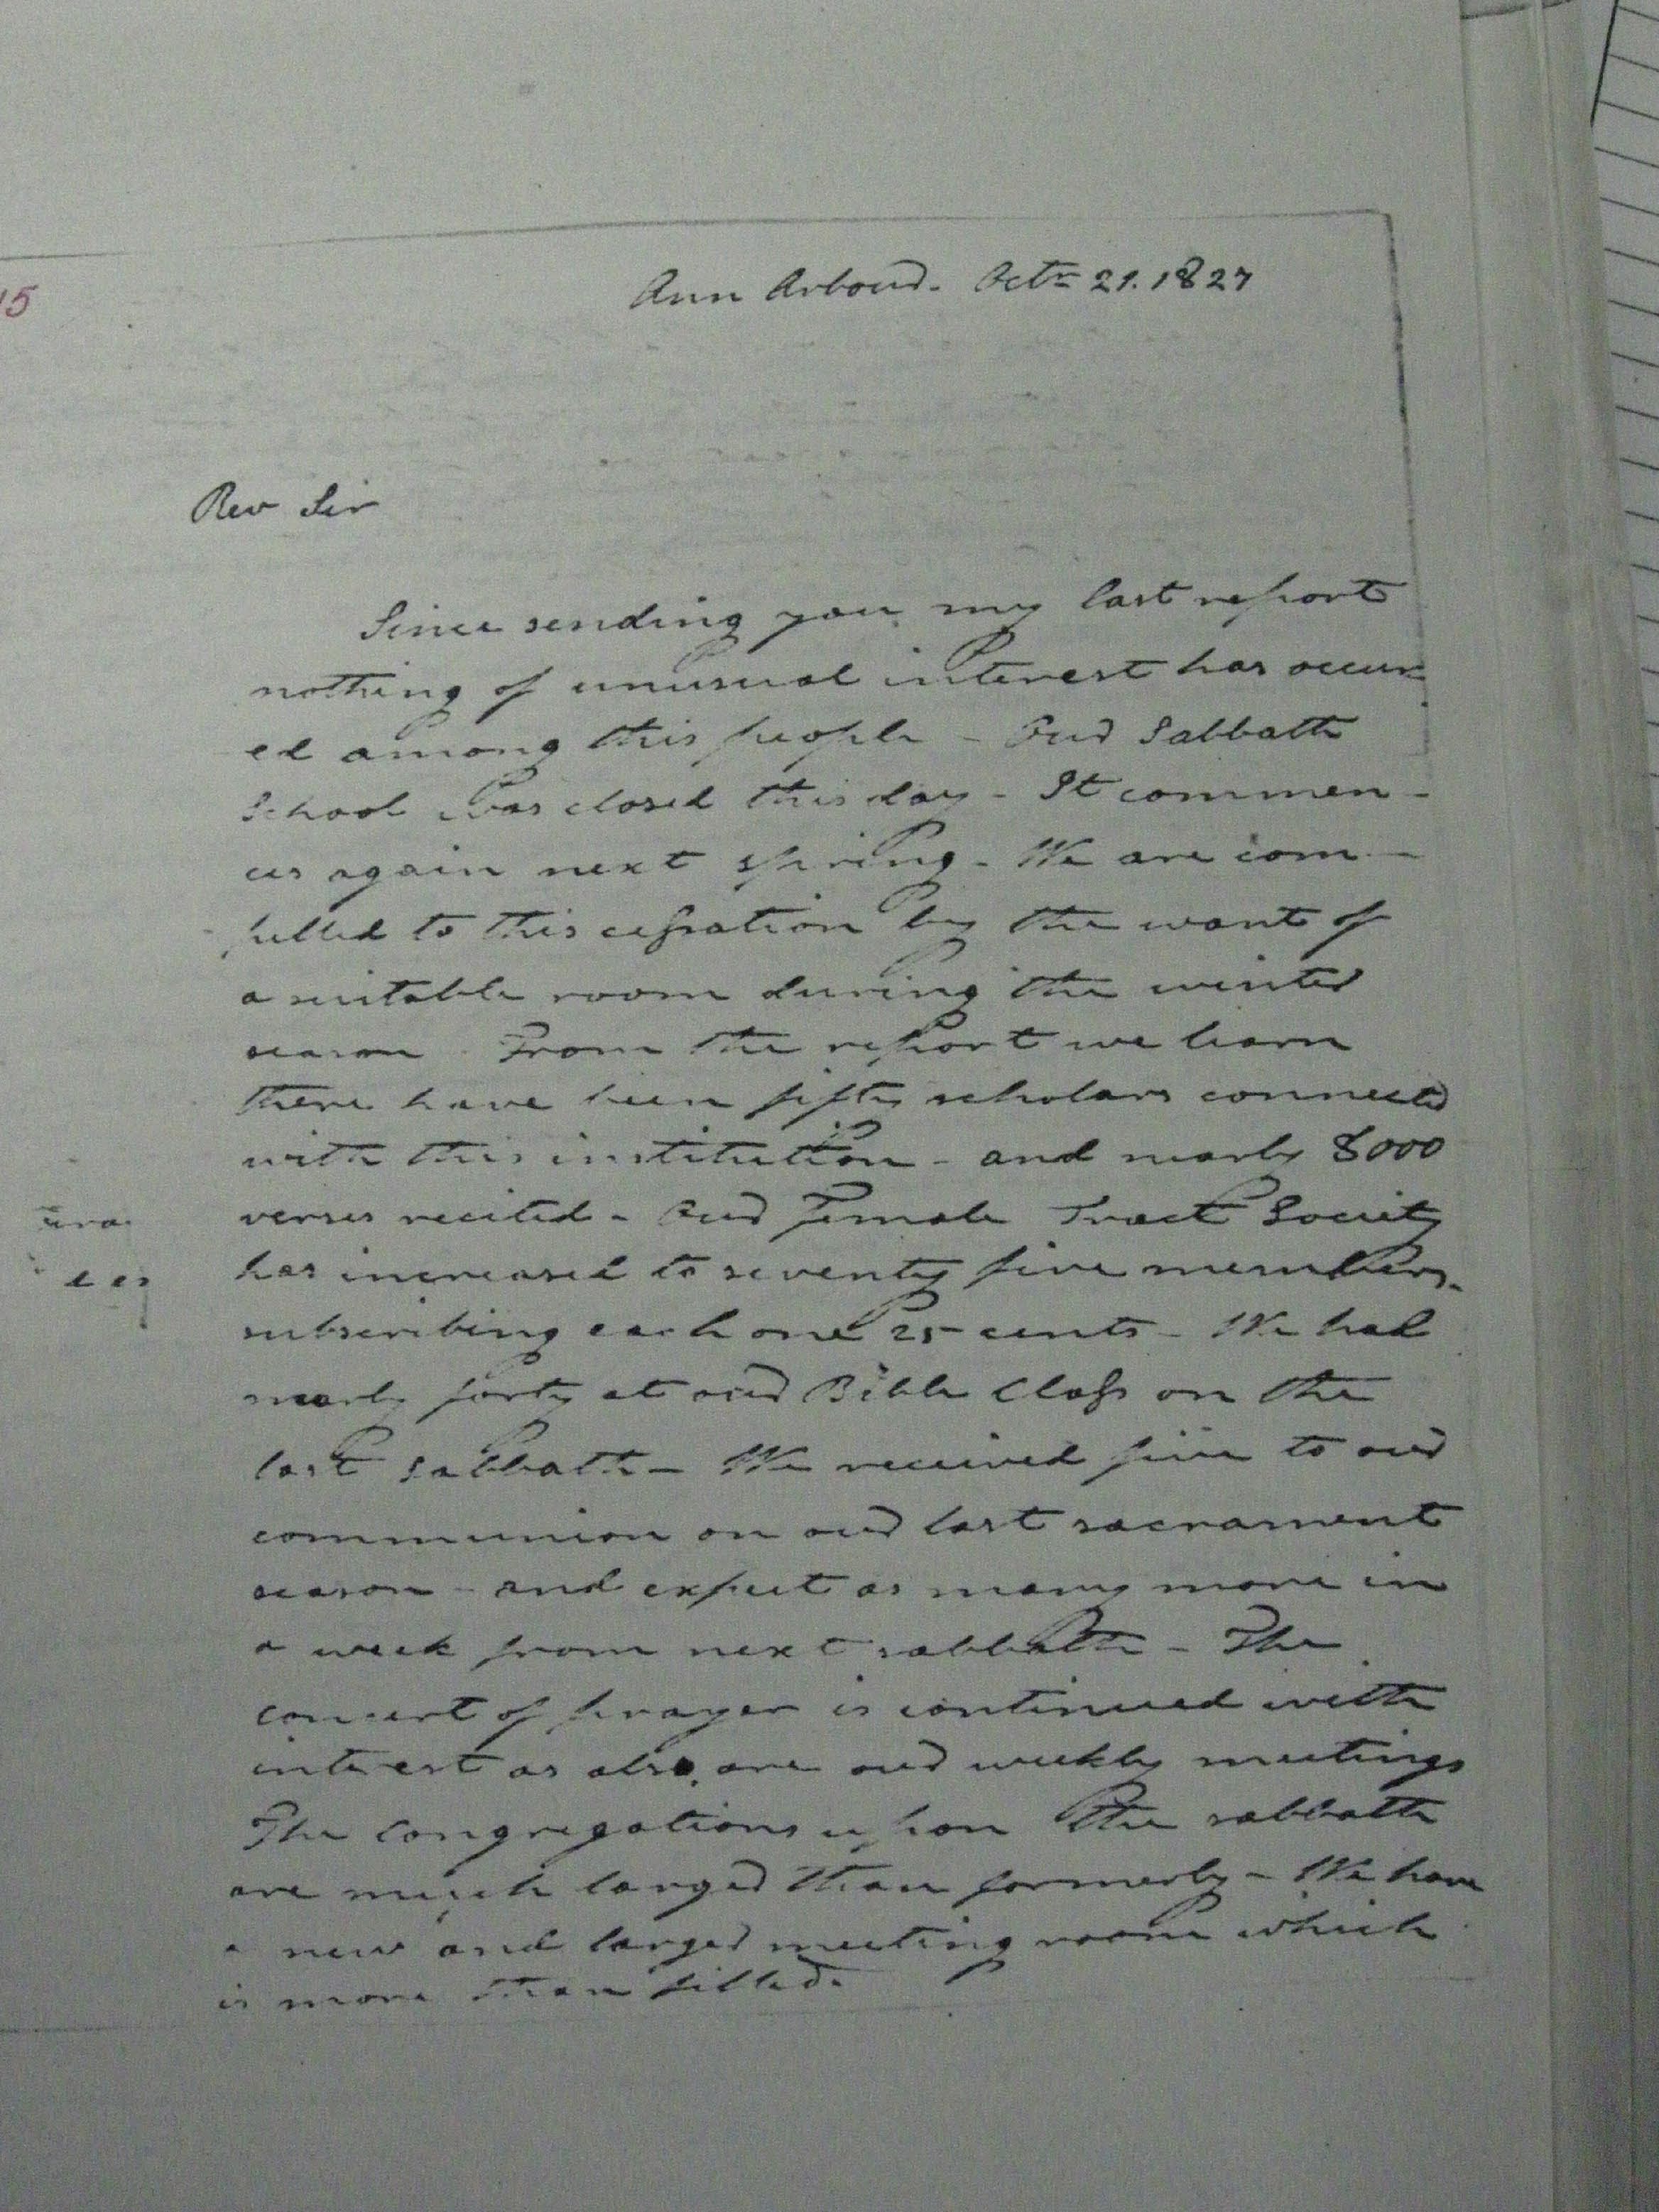 15
Ann Arbour. Octr 21. 1827
Rev Sir
Since sending you my last report
nothing of unusual interest has occur
ed among this people - Our Sabbath
School was closed this day - It commen-
ces again next spring - We are com-
pelled to this cessation by the want of
a suitable room during the winter
season. From the report we learn
there have been fifty scholars connected
with this institution - and nearly 8000
verses recited - Our Female Tract Society
has increased to seventy five members.
subscribing each one 25 cents - We had
nearly forty at our Bible Class on the
last Sabbath - We received five to our
communion on our last sacrament
season - and expect as many more in
a week from next sabbath - The
concert of prayer is continued with
interest as also are our weekly meetings
The congregations upon the sabbath
are much larger than formerly - We have
a new and larger meeting room which
is more than filled.